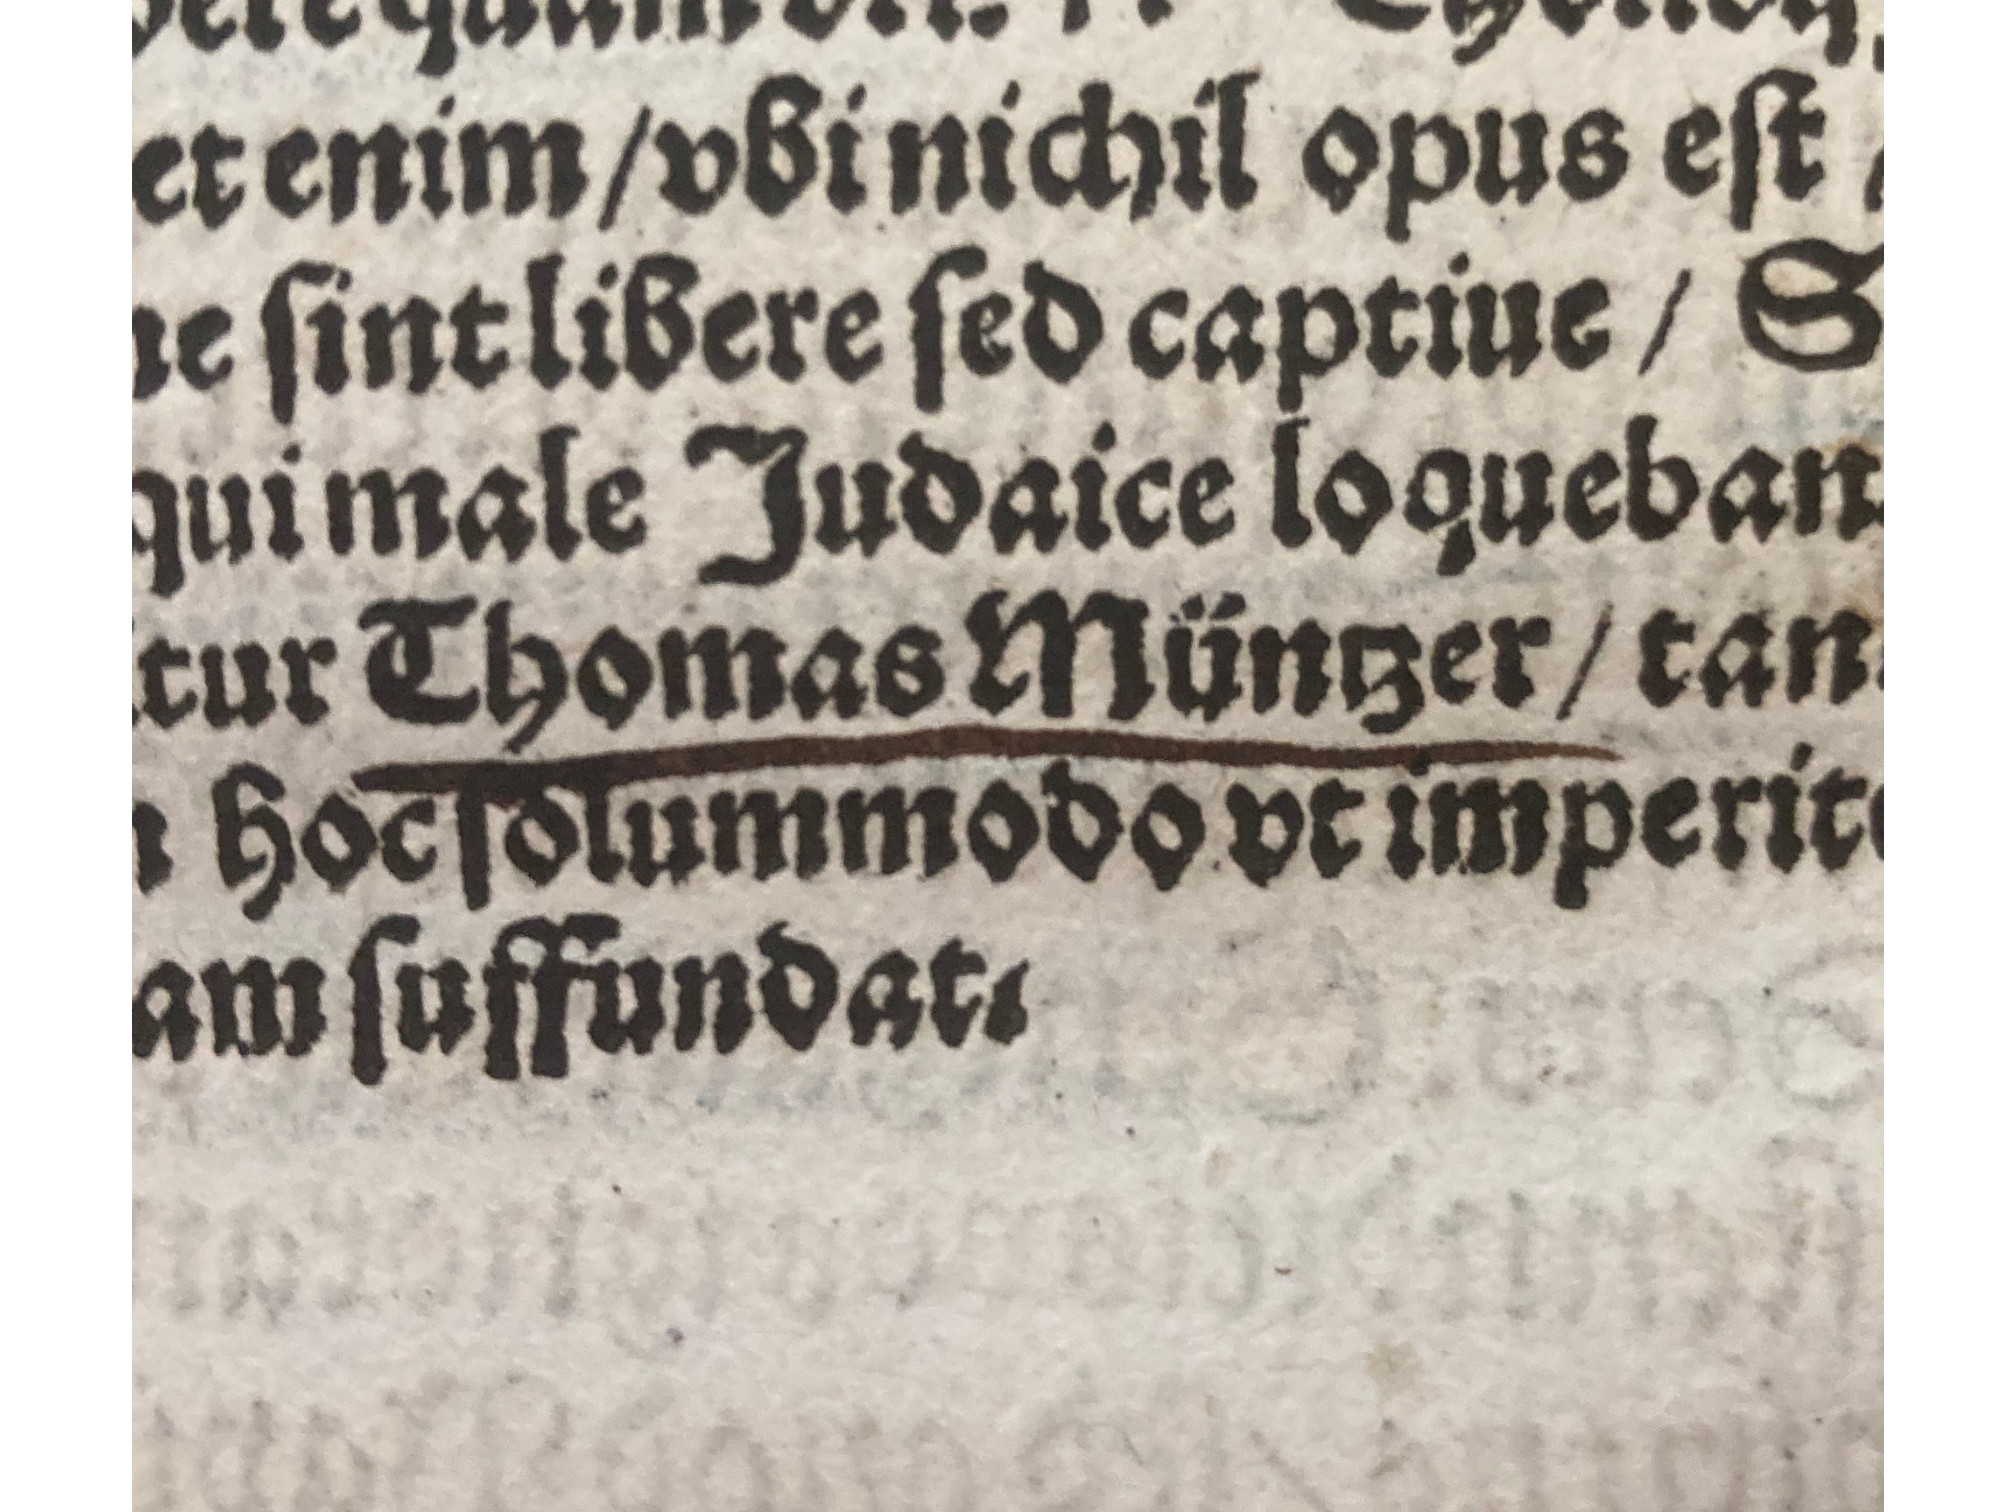 et enim / vbi nichil opus est /
ne sint libere sed captiue / S
qui male Judaice loqueban
tur Thomas Müntzer / tan
hoc solummodo vt imperit
am suffundat.